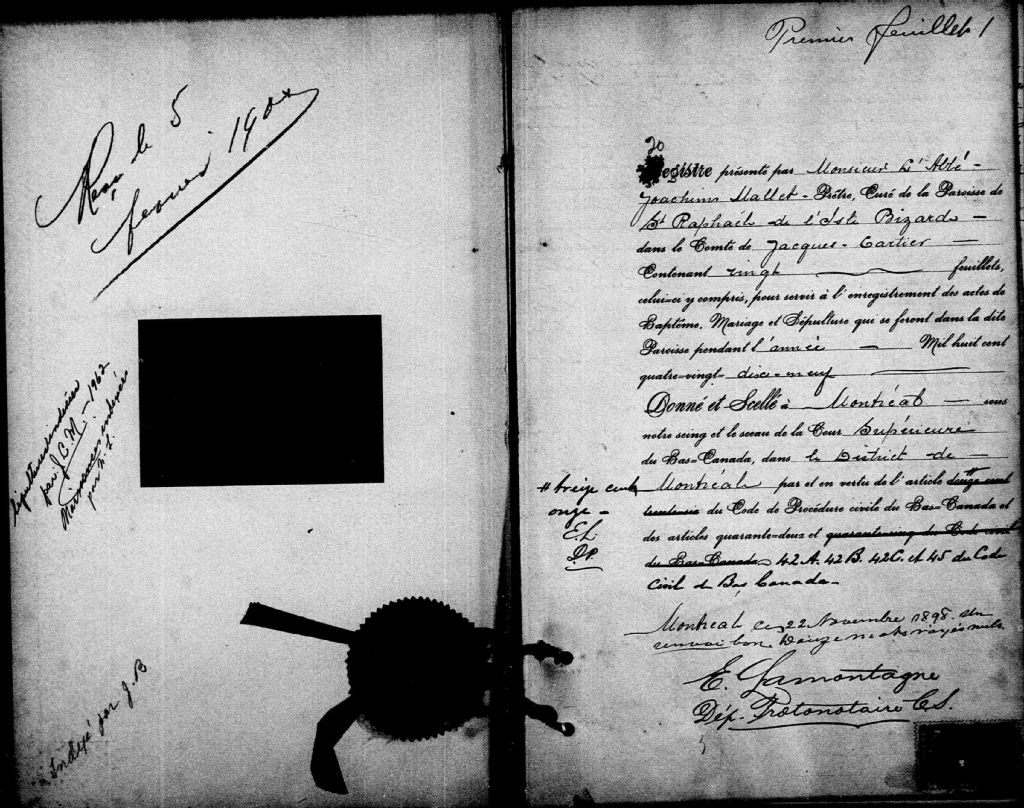 Reçu le 5
1900
Sépultures indexées
par J. C. M. - 1962
Mariages indexés
par
Indexé par J. B
Premier feuillet 1
20
Registre présenté par Monsieur L'Abbé -
Joachim Mallet - Prêtre, Curé de la Paroisse de
St Raphaël de l'Isle Bizard -
dans le Comté de Jacques-Cartier -
Contenant vingt feuillets,
celui-ci y compris, pour servir à l'enregistrement des actes de
Baptême, Mariage et Sépulture qui se feront dans la dite
Paroisse pendant l'année - Mil huit cent
quatre-vingt- dix-neuf
Donné et Scellé à Montréal - sous
notre seing et le sceau de la Cour Supérieure
du Bas-Canada, dans le District de -
Montréal par et en vertu de l'article douze cent
# treize cent
onze -
E. L.
D. P.
du Code de Procédure civile du Bas-Canada et
des articles quarante-deux et quarante-cinq du Code civil
du Bas-Canada 42A. 42B. 42C. et 45 du Code
Civil du Bas Canada -
Montréal ce 22 Novembre 1898. Un
renvoi bon. Douze mots rayés nuls.
E. Lamontagne
Dép. Protonotaire C. S.